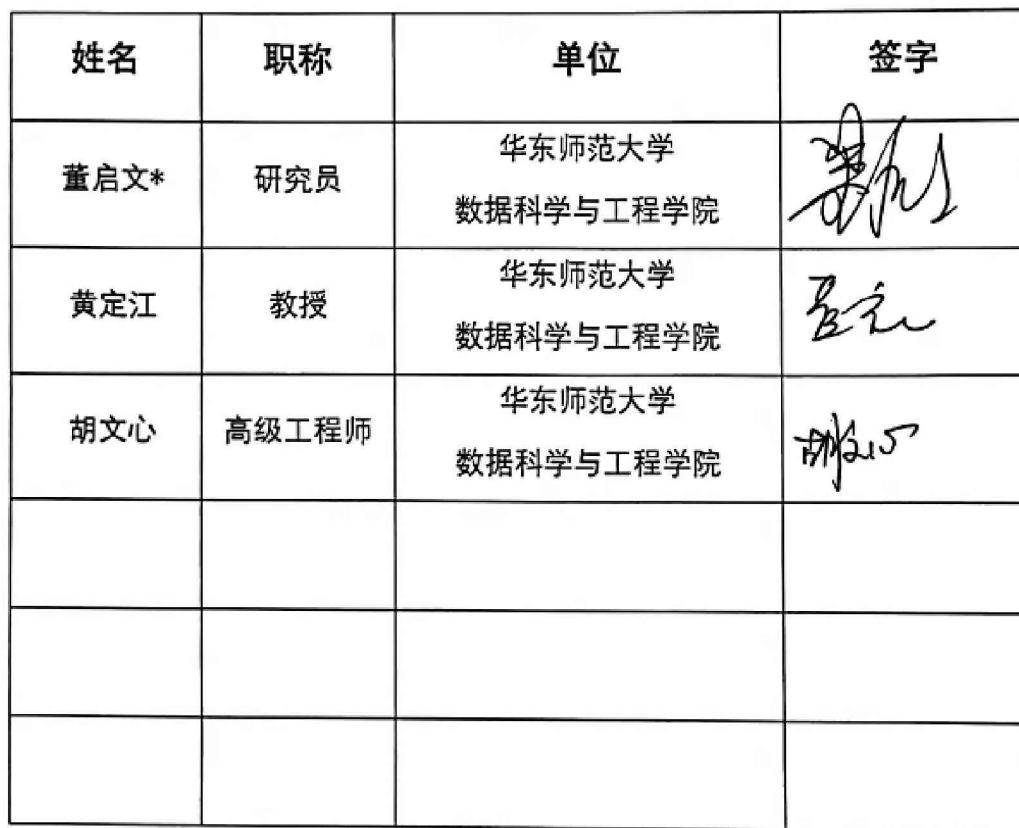 姓名 职称 单位 签字
董启文* 研究员 华东师范大学
数据科学与工程学院
黄定江 教授 华东师范大学
数据科学与工程学院
胡文心 高级工程师 华东师范大学
数据科学与工程学院
胡文心